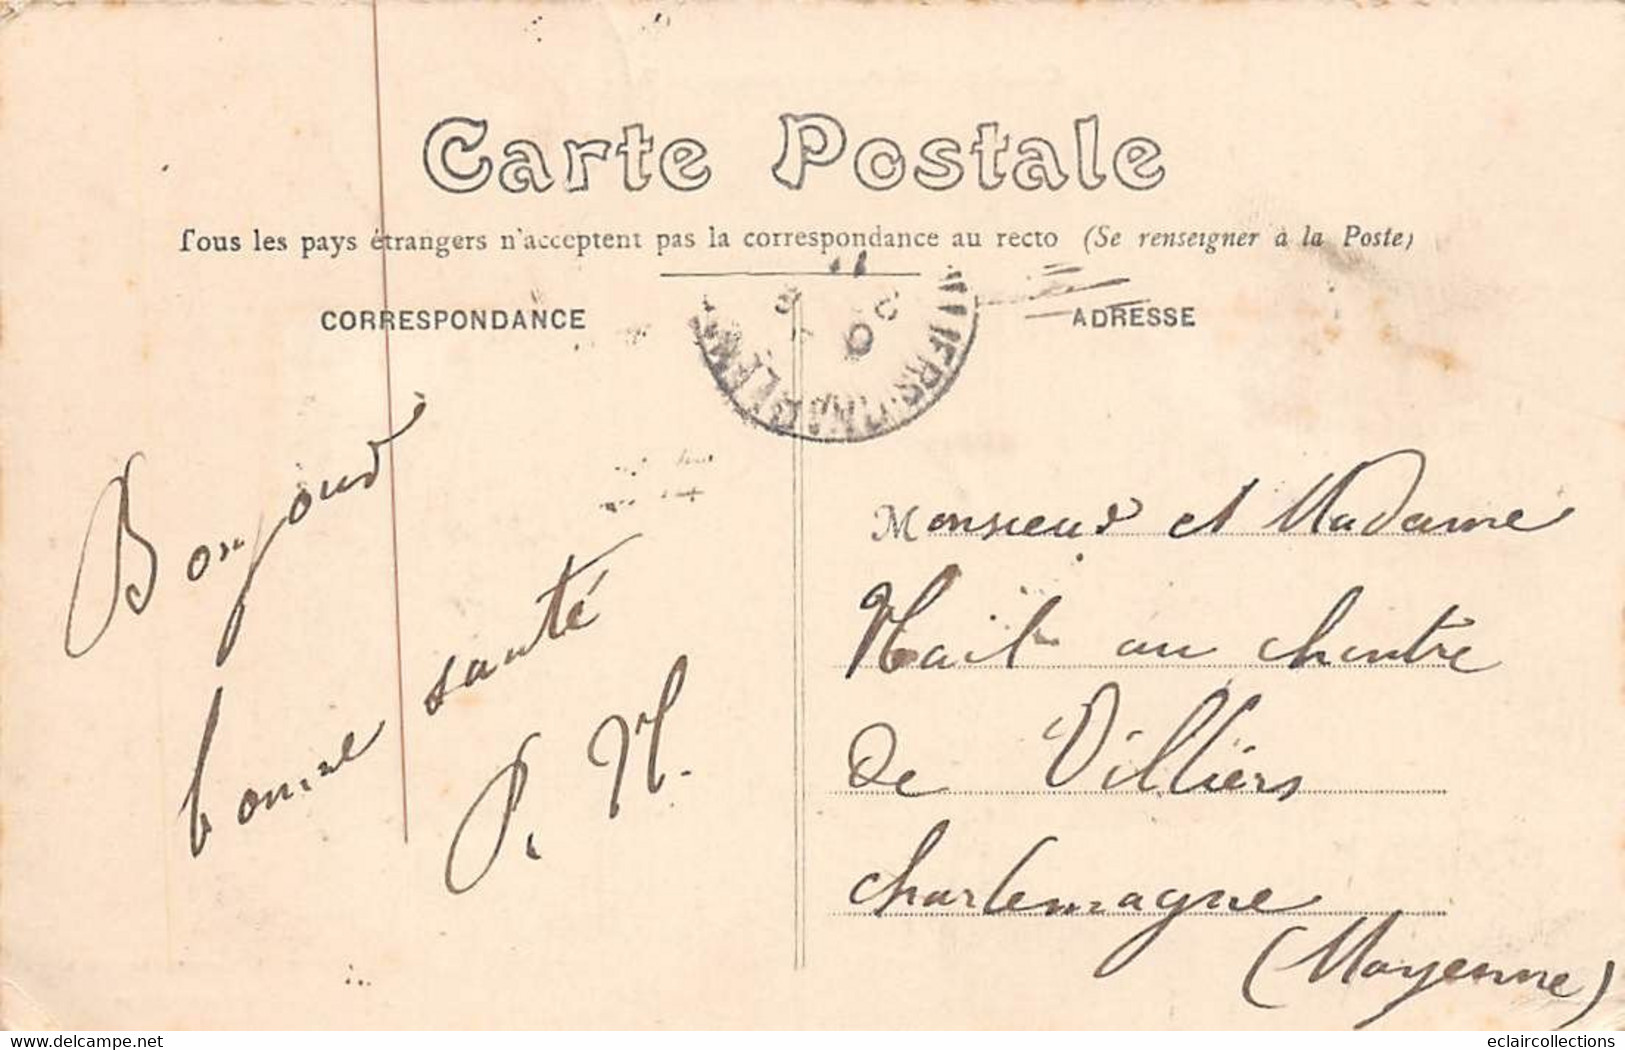 Carte Postale
Tous les pays étrangers n'acceptent pas la correspondance au recto (Se renseigner à la Poste)
CORRESPONDANCE
ADRESSE
Bonjour
bonne santé
P. H.
Monsieur et Madame
au chintre
de Villiers
charlemagne
(Mayenne)
delcampe.net
eclaircollections